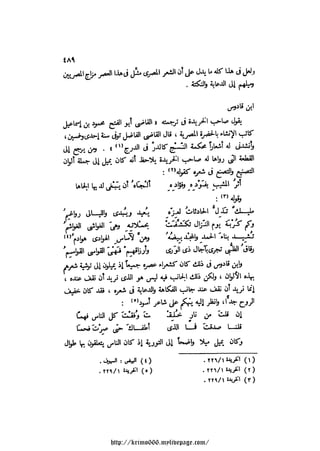 ٤٨٩
ولعل فى هذا كله ما يدل على أن الشعر المصرى مثّل فى هذا العصر مزاج المصريين
وميلهم إلى الدعابة والنكتة .
ابن قادوس
يقول صاحب الخريدة فى ترجمته « القاضى أبو الفتح محمود بن إسماعيل
كاتب الإنشاء بالحضرة المصرية ، قال القاضى الفاضل توفى سنة إحدى وخمسين ،
وأنشدنى له أشعاراً محكمة النسج كالدر فى الدرج » (١) . ومن يرجع إلى
القطعة التى رواها له صاحب الخريدة يلاحظ أنه كان يميل إلى جملة ألوان
التصنيع والتصنع فى شعره كقوله (٢) :
أثر المشيب بفوده وفؤاده ألجأه أن يبغى لد بها الجاها
وقوله (٣) :
مليك تذل الحادثات لعزه يعيد ويبدى والليالى رواغم
وكم كربة يوم النزال تكشفت بحملاته وهى الغواشى الغواشم
تشيد بناء الحمد والمجد بيضه وهن لآساس الهوادى هوادم (٤)
رقاق الظبى تجرى بآجال ذى الورى وأرزاقهم فهى القواسى القواسم
وابن قادوس فى ذلك كان كشعراء عصره جميعاً إذ يميلون إلى توشية شعرهم
بهذه الألوان ، ولكن ذلك الجانب فيه ليس هو الذى نريد أن نقف عنده ،
إنما نريد أن نقف عند جانب الفكاهة والدعابة فى شعره ، فقد كان خفيف
الروح جداً ، وانظر إليه يتهكم على شاعر أسود (٥) :
إن قلت من نار خلقـ ـت وفقت كل الناس فهما
قلنا صدقت فما الذى أطفاك حتى صرت فحما
وكان يميل ميلا واضحاً إلى التورية إذ كان الناس يتعلقون بها طوال
(١) الخريدة ٢٢٦/١ . (٤) البيض : السيوف .
(٢) الخريدة ٢٢٦/١ . (٥) الخريدة ٢٢٩/١ .
(٣) الخريدة ٢٢٩/١ .
http://krimo666.mylivepage.com/